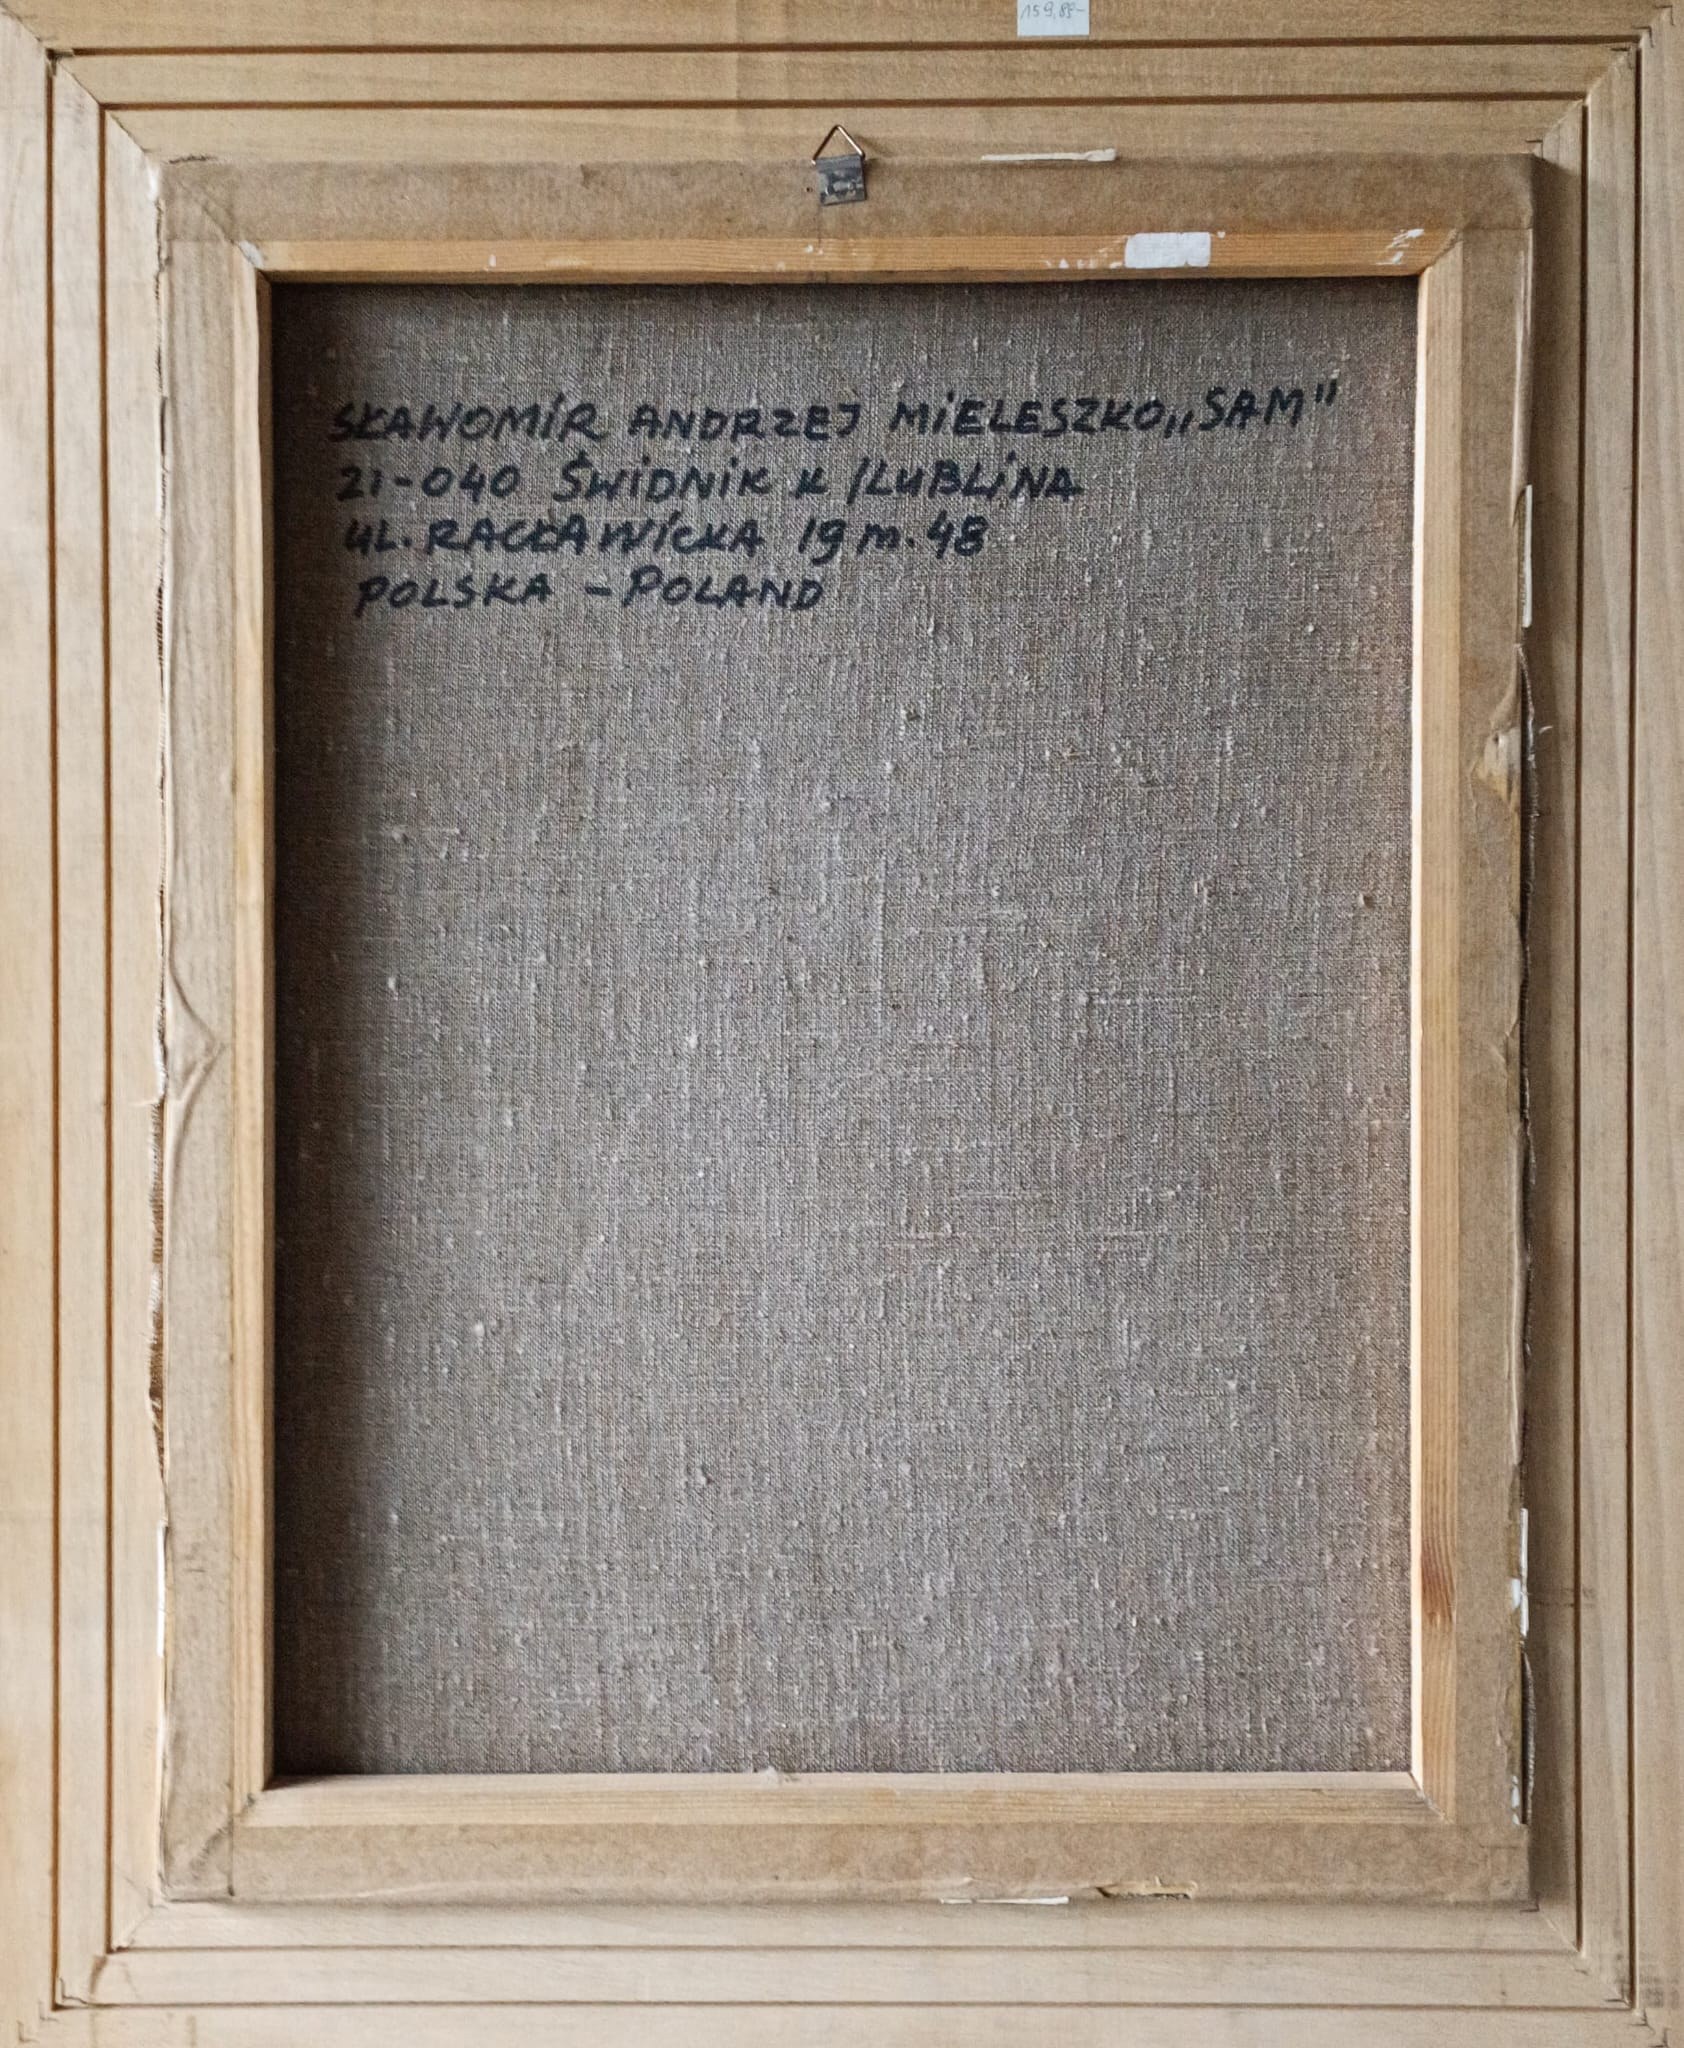 159,89-
SŁAWOMIR ANDRZEJ MIELESZKO „SAM”
21-040 ŚWIDNIK K/LUBLINA
UL. RACŁAWICKA 19 m. 48
POLSKA - POLAND